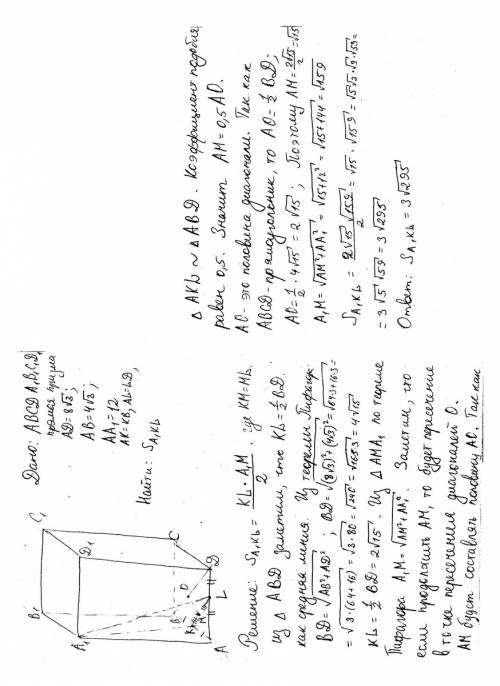 B₁
C₁
A₁
D₁
B
C
K
M
O
A
L
D
Дано: ABCDA₁B₁C₁D₁
прямая призма
AD=8√3;
AB=4√3;
AA₁=12
AK=KB, AL=LD
Найти: S_A₁KL
Решение: S_A₁KL = KL·A₁M/2, где KM=ML.
из △ ABD заметим, что KL=½BD.
как средняя линия. Из теоремы Пифагора
BD=√AB²+AD²; BD=√(8√3)²+(4√3)²=√64·3+16·3=
=√3·(64+16)=√3·80=√240=√16·5·3=4√15
KL=½BD=2√15. Из △AMA₁ по теореме
Пифагора A₁M=√AM²+AA₁². Заметим, что
если продолжить AM, то будет пересечение
в точке пересечения диагоналей O.
AM будет составлять половину AO. Так как
△ AKL ~ △ABD. Коэффициент подобия
равен 0,5. Значит AM=0,5AO.
AO-это половина диагонали. Так как
ABCD-прямоугольник, то AO=½BD;
AO=½·4√15=2√15; Поэтому AM=2√15/2=√15
A₁M=√AM²+AA₁²=√15+12²=√15+144=√159
S_A₁KL=2√15√159/2=√15·√159=√5√3·√3·√53=
=3√5√59=3√295
Ответ: S_A₁KL=3√295